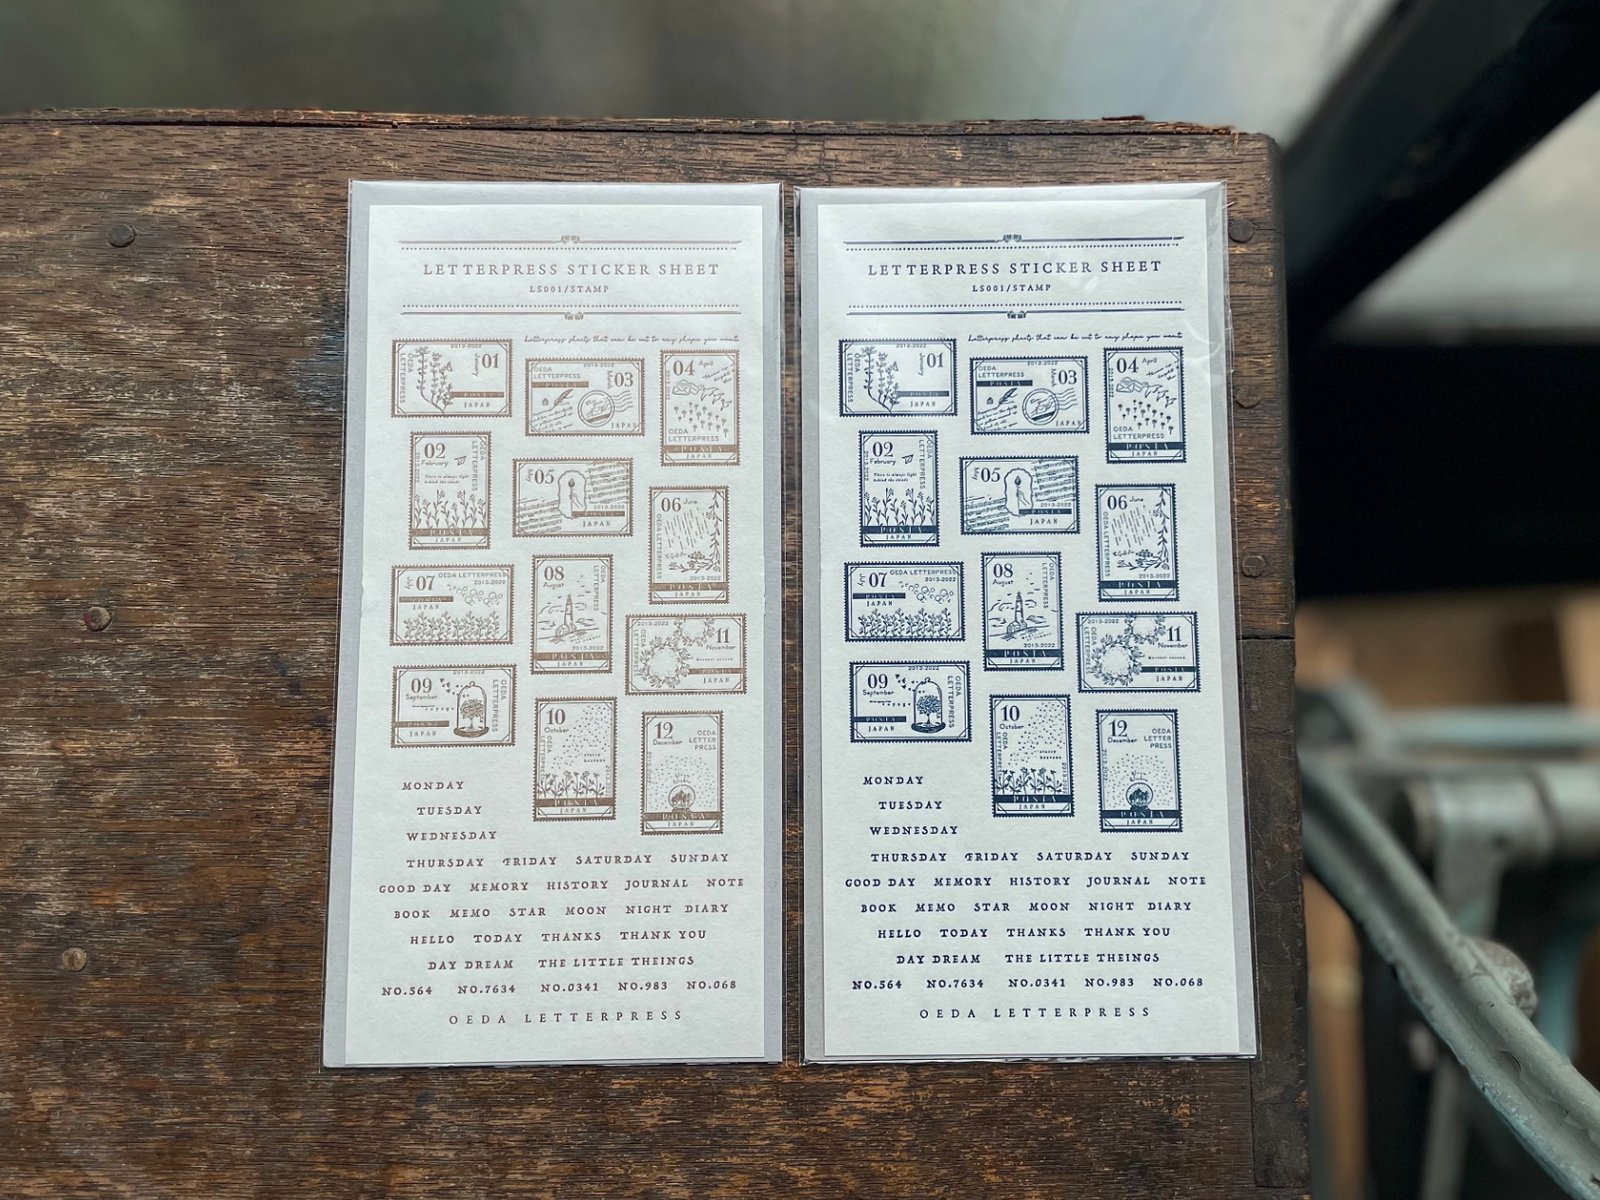 LETTERPRESS STICKER SHEET
LS001/STAMP
Letterpress sheets that can be cut to any shape you want
OEDA LETTERPRESS
2013-2022
January
01
POSTA
JAPAN
2013-2022
OEDA
LETTERPRESS
POSTA
March
03
JAPAN
04 April
2013-2022
OEDA
LETTERPRESS
POSTA
JAPAN
02
February
There is always light
behind the clouds
OEDA LETTERPRESS
2013-2022
POSTA
JAPAN
May
05
2013-2022
POSTA
JAPAN
06 June
OEDA LETTERPRESS
2013-2022
POSTA
JAPAN
July
07
OEDA LETTERPRESS
2013-2022
POSTA
JAPAN
08
August
OEDA LETTERPRESS
2013-2022
POSTA
JAPAN
2013-2022
OEDA LETTERPRESS
11
November
POSTA
JAPAN
2013-2022
09
September
OEDA LETTERPRESS
POSTA
JAPAN
10
October
OEDA LETTERPRESS
starry
heavens
2013-2022
POSTA
JAPAN
12
December
OEDA
LETTER
PRESS
2013-2022
POSTA
JAPAN
MONDAY
TUESDAY
WEDNESDAY
THURSDAY FRIDAY SATURDAY SUNDAY
GOOD DAY MEMORY HISTORY JOURNAL NOTE
BOOK MEMO STAR MOON NIGHT DIARY
HELLO TODAY THANKS THANK YOU
DAY DREAM THE LITTLE THEINGS
NO.564 NO.7634 NO.0341 NO.983 NO.068
OEDA LETTERPRESS
LETTERPRESS STICKER SHEET
LS001/STAMP
Letterpress sheets that can be cut to any shape you want
OEDA LETTERPRESS
2013-2022
January
01
POSTA
JAPAN
2013-2022
OEDA
LETTERPRESS
POSTA
March
03
JAPAN
04 April
2013-2022
OEDA
LETTERPRESS
POSTA
JAPAN
02
February
There is always light
behind the clouds
OEDA LETTERPRESS
2013-2022
POSTA
JAPAN
May
05
2013-2022
POSTA
JAPAN
06 June
OEDA LETTERPRESS
2013-2022
POSTA
JAPAN
July
07
OEDA LETTERPRESS
2013-2022
POSTA
JAPAN
08
August
OEDA LETTERPRESS
2013-2022
POSTA
JAPAN
2013-2022
OEDA LETTERPRESS
11
November
POSTA
JAPAN
2013-2022
09
September
OEDA LETTERPRESS
POSTA
JAPAN
10
October
OEDA LETTERPRESS
starry
heavens
2013-2022
POSTA
JAPAN
12
December
OEDA
LETTER
PRESS
2013-2022
POSTA
JAPAN
MONDAY
TUESDAY
WEDNESDAY
THURSDAY FRIDAY SATURDAY SUNDAY
GOOD DAY MEMORY HISTORY JOURNAL NOTE
BOOK MEMO STAR MOON NIGHT DIARY
HELLO TODAY THANKS THANK YOU
DAY DREAM THE LITTLE THEINGS
NO.564 NO.7634 NO.0341 NO.983 NO.068
OEDA LETTERPRESS